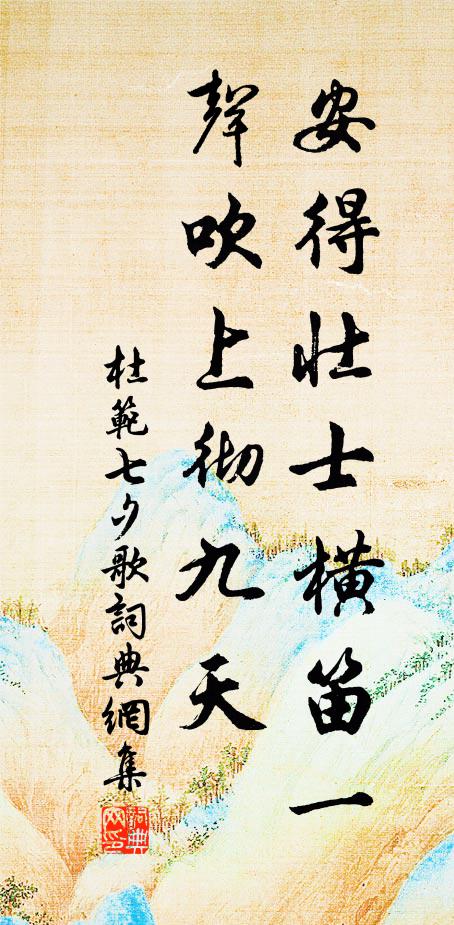 安得壮士横笛一
聲吹上彻九天
杜範七夕歌詞典網集
詞典网印